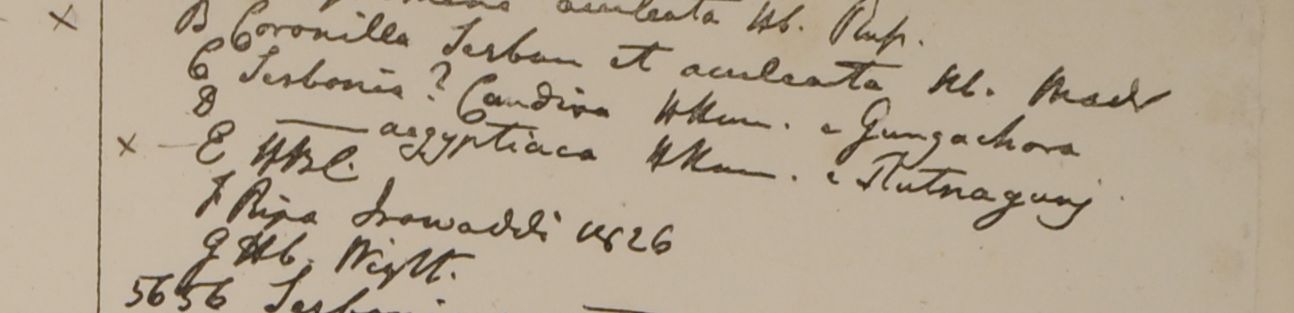 aculeata Hb. Rup.
B Coronilla Sesban et aculeata Hb. Madr
C Sesbania ? Candiva HHam. e Gungachora
D —— aegyptiaca HHam. e Nutnagunj
E HBC.
F Ripa Irawaddi 1826
G Hb. Wight.
5656 Sesbani